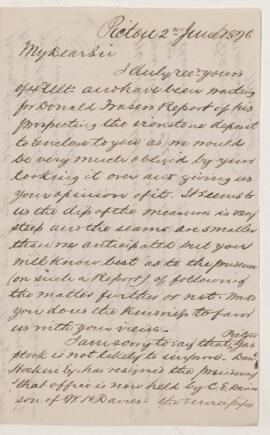 Pictou 2nd June 1876
My Dear Sir
I duly recd yours
of 4 Ult. and have been waiting
for Donald Frasers Report of his
prospecting the ironstone deposit
to enclose to you as we would
be very much obliged by your
looking it over and giving us
your opinion of it. It seems to
us the dip of the measures is very
steep and the seams are smaller
than we anticipated but you
will know best as to the
(on such a Report) of following
the matter further or not. Would
you do us the kindness to favor
us with your views.
I am sorry to say that Pictou Gas
stock is not likely to improve.
has resigned the
that office is now held by C. E. Davi
son of W. H. Davies the service pipes